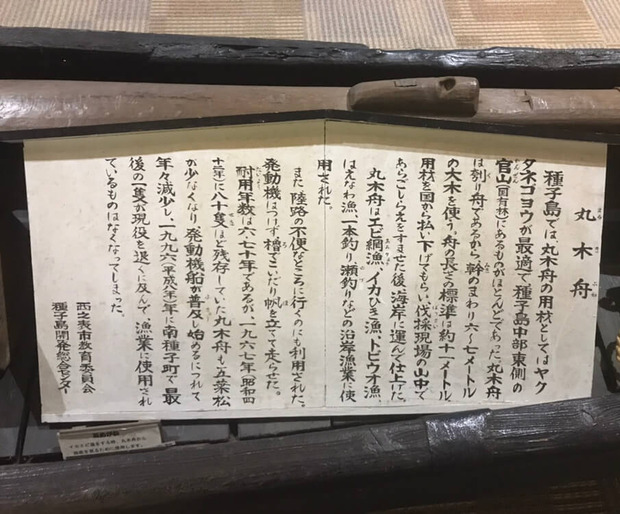 丸木舟
種子島では丸木舟の用材としてはヤク
タネゴヨウが最適で、種子島中部東側の
官山(国有林)にあるものがほとんどであった。丸木舟
は刳り舟であるから、幹のまわり六〜七メートル
の大木を使う。舟の長さの標準は約十一メートル。
用材を国から払い下げてもらい、伐採現場の山中で
あらごしらえをすませた後、海岸に運んで仕上げた。
丸木舟はエビ網漁、イカひき漁、トビウオ漁、
はえなわ漁、一本釣り、瀬釣りなどの沿岸漁業に使
用された。
また、陸路の不便なところに行くのにも利用された。
発動機はつけず櫓でこいだり帆を立てて走らせた。
耐用年数は六、七十年であるが、一九六七年(昭和四
十二年)に八十隻ほど残存していた丸木舟も五葉松
が少なくなり発動機船が普及し始めるにつれて
年々減少し、一九九六(平成八)年に南種子町で最
後の一隻が現役を退くに及んで、漁業に使用され
ているものはなくなってしまった。
西之表市教育委員会
種子島開発総合センター